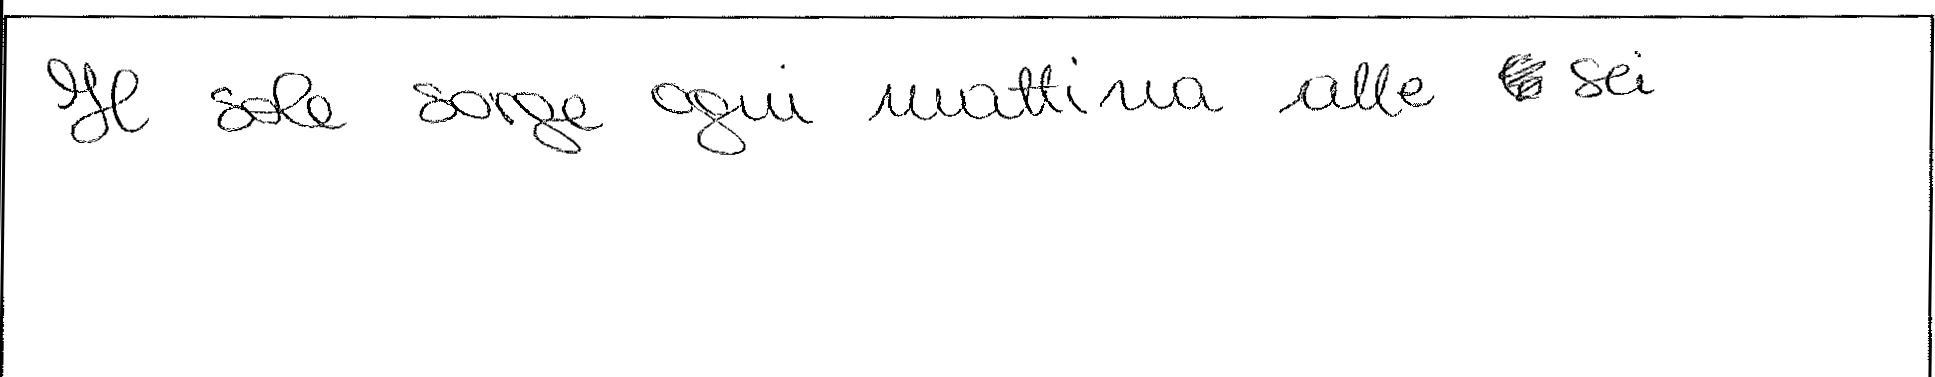 Il sole sorge ogni mattina alle sei